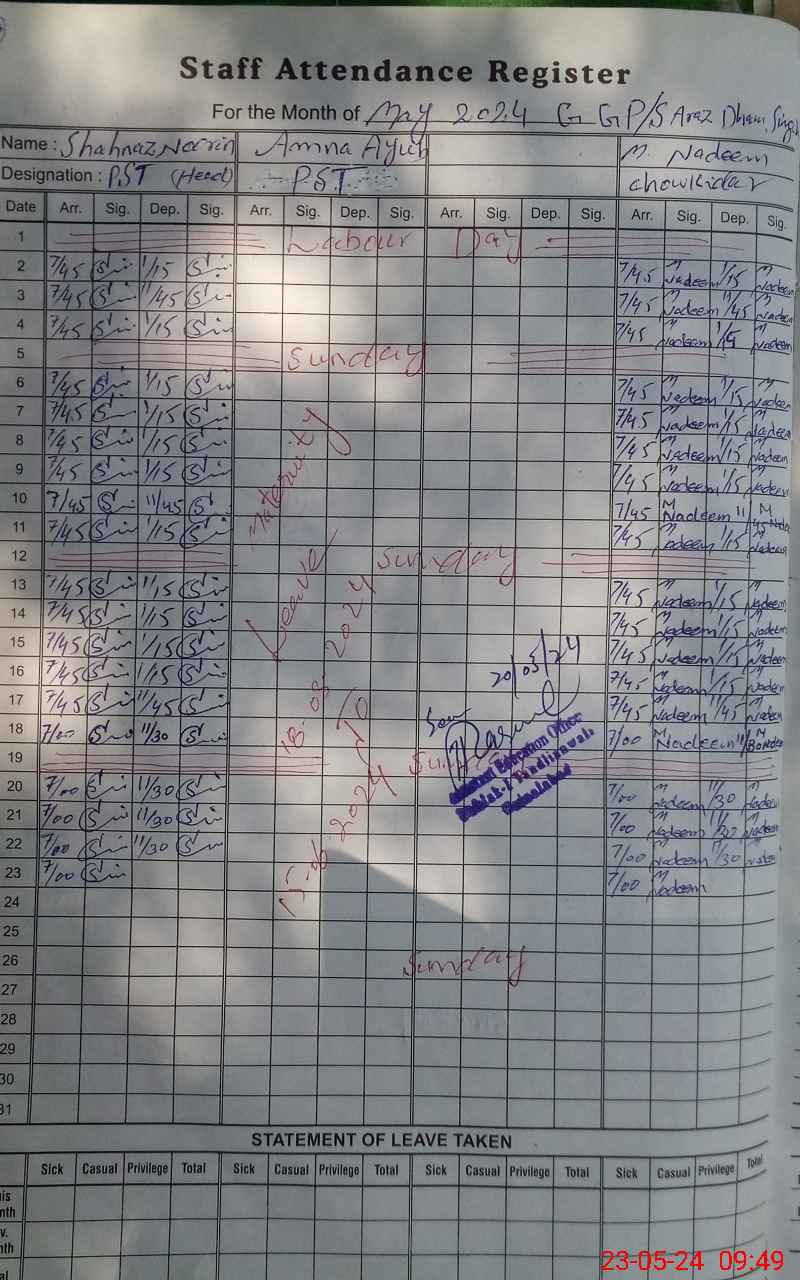 Staff Attendance Register
For the Month of May 2024 G GP/S Araz Dham Singh
Name : Shahnaz Nasrin Amna Ayub M. Nadeem
Designation : PST (Head) PST Chowkidar
Date Arr. Sig. Dep. Sig. Arr. Sig. Dep. Sig. Arr. Sig. Dep. Sig. Arr. Sig. Dep. Sig.
1 Labour Day
2 7/45 1/15 7/45 M Nadeem 1/15 M Nadeem
3 7/45 11/45 7/45 M Nadeem 11/45 M Nadeem
4 7/45 1/15 7/45 M Nadeem 1/15 M Nadeem
5 Sunday
6 7/45 1/15 7/45 M Nadeem 1/15 M Nadeem
7 7/45 1/15 7/45 M Nadeem 1/15 M Nadeem
8 7/45 1/15 7/45 M Nadeem 1/15 M Nadeem
9 7/45 1/15 7/45 M Nadeem 1/15 M Nadeem
10 7/45 11/45 7/45 M Nadeem 11/45 M Nadeem
11 7/45 1/15 7/45 M Nadeem 1/15 M Nadeem
12 Sunday
13 7/45 1/15 7/45 M Nadeem 1/15 M Nadeem
14 7/45 1/15 7/45 M Nadeem 1/15 M Nadeem
15 7/45 1/15 7/45 M Nadeem 1/15 M Nadeem
16 7/45 1/15 7/45 M Nadeem 1/15 M Nadeem
17 7/45 11/45 7/45 M Nadeem 11/45 M Nadeem
18 7/00 11/30 7/00 M Nadeem 11/30 M Nadeem
19
20 7/00 11/30 7/00 M Nadeem 11/30 Nadeem
21 7/00 11/30 7/00 M Nadeem 11/30 M Nadeem
22 7/00 11/30 7/00 M Nadeem 11/30 M Nadeem
23 7/00 7/00 M Nadeem
24
25
26 Sunday
27
28
29
30
31
Maternity
Leave
2024
To
15-06-2024
20/05/24
Seen
Assistant Education Officer
Tandlianwala
Faisalabad
STATEMENT OF LEAVE TAKEN
Sick Casual Privilege Total Sick Casual Privilege Total Sick Casual Privilege Total Sick Casual Privilege Total
23-05-24 09:49